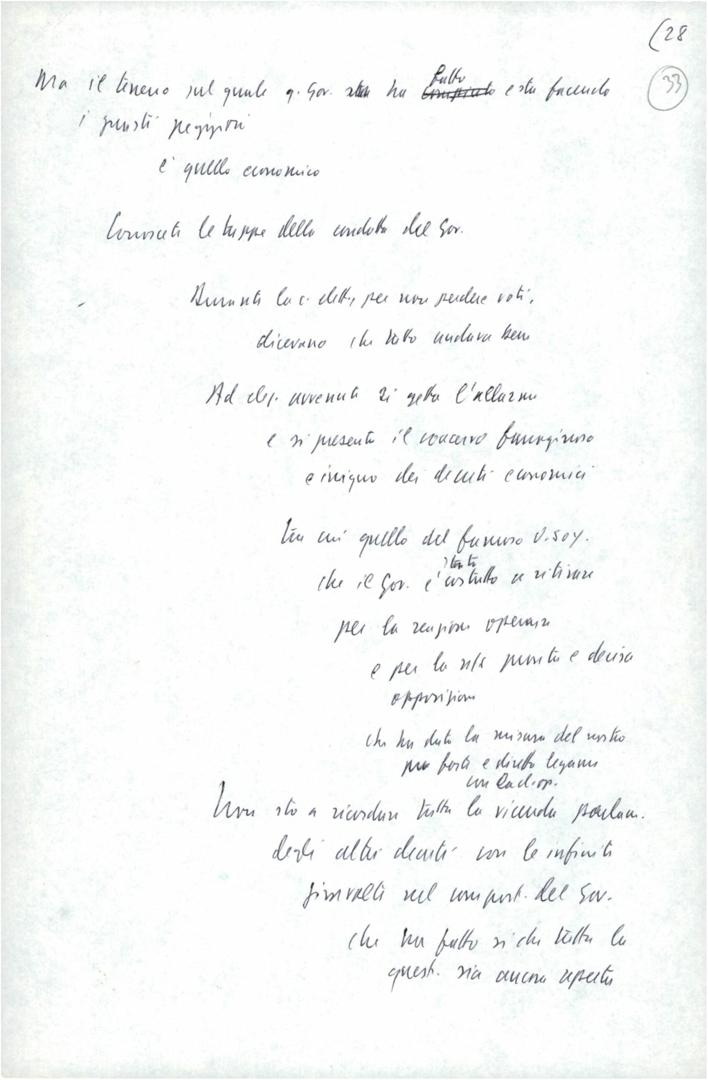 (28
33
Ma il terreno sul quale q. Gov. sta ha fatto comprato e sta facendo
i guasti peggiori
è quello economico
Conoscete le tappe della condotta del Gov.
Durante la c. elett., per non perdere voti,
dicevano che tutto andava bene
Ad elez. avvenute si getta l'allarme
e si presenta il coacervo farraginoso
e iniquo dei decreti economici
tra cui quello del famoso 0.50%.
che il Gov. è stato costretto a ritirare
per la reazione operaia
e per la ns/ pronta e decisa
opposizione
che ha dato la misura del nostro
più forte e diretto legame
con la cl. op.
Non sto a ricordare tutta la vicenda parlam.
degli altri decreti con le infinite
giravolte nel comport. del Gov.
che ha fatto sì che tutta la
quest. sia ancora aperta